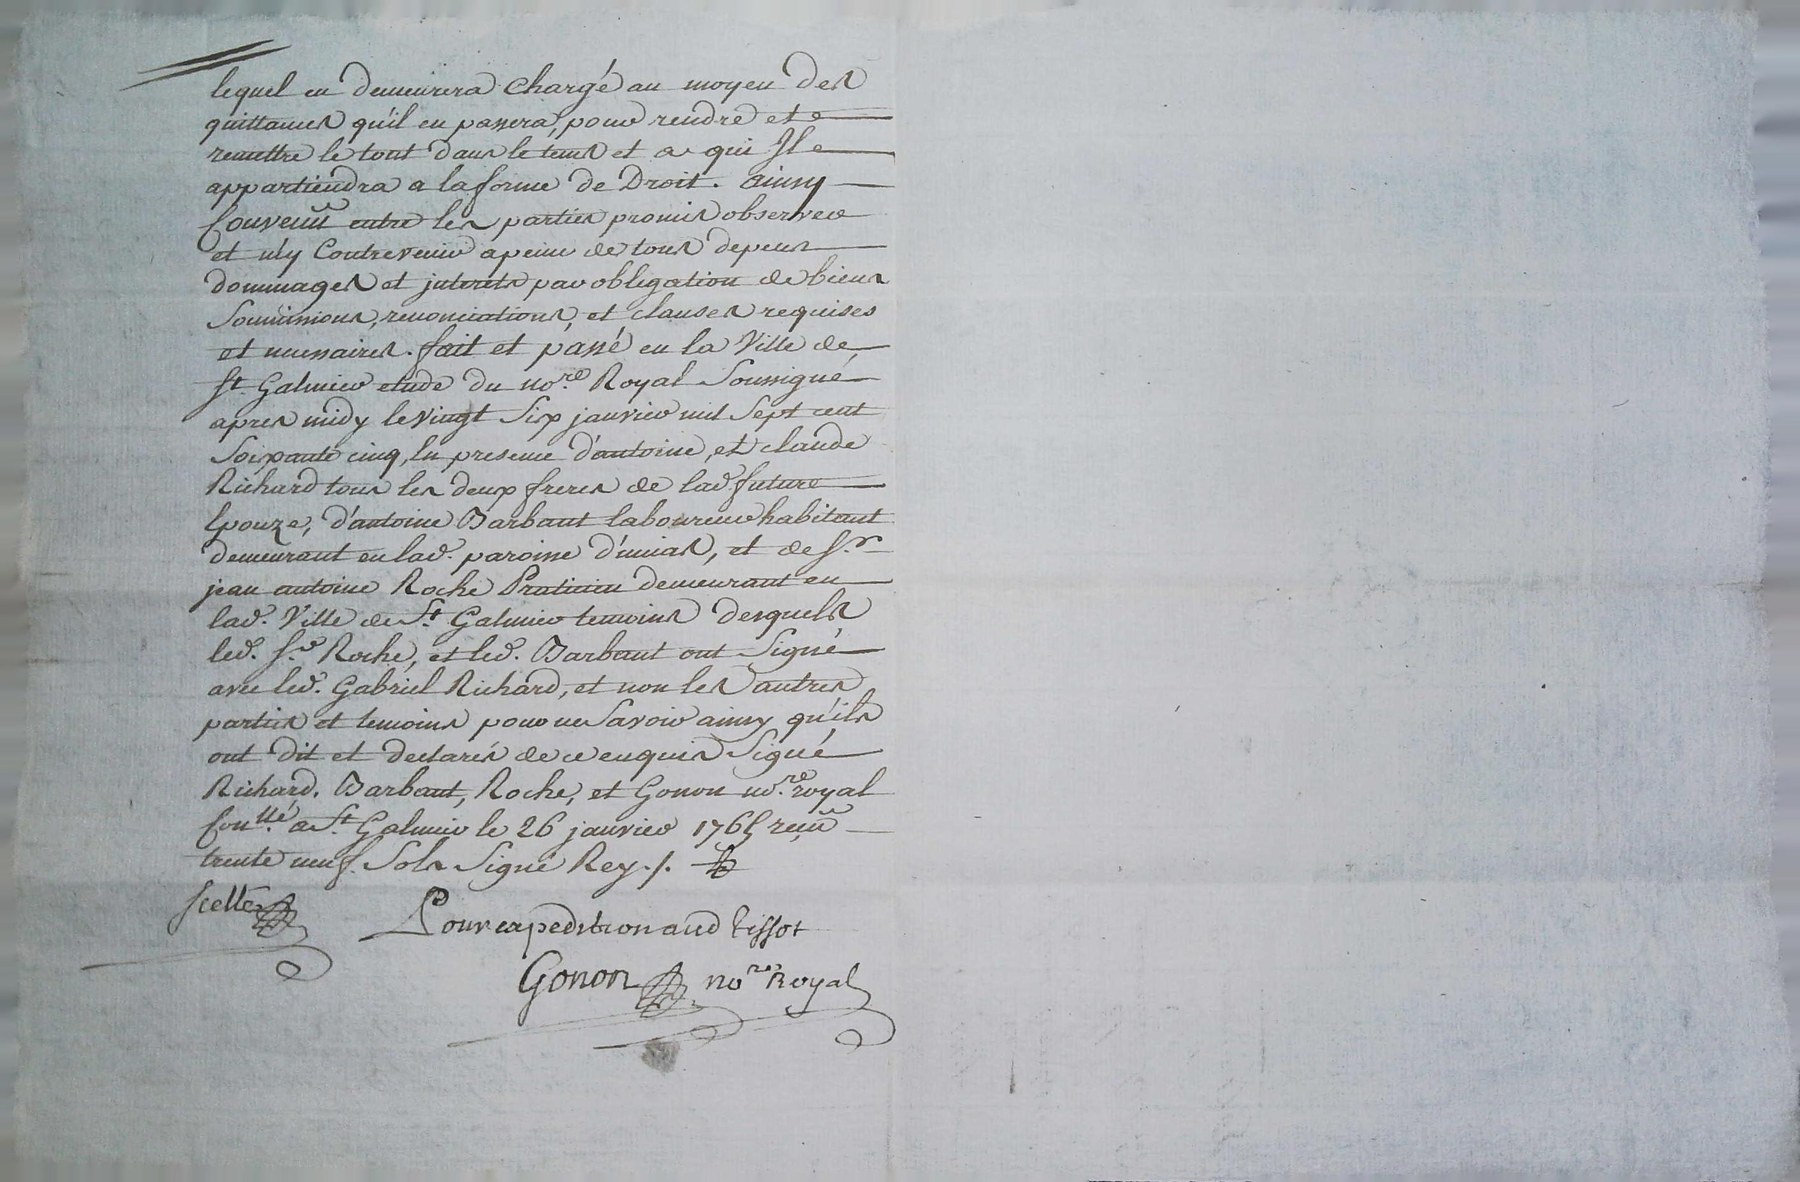 lequel en demeurera chargé au moyen des
quittances qu'il en passera, pour rendre et
remettre le tout dans le tems et a qui Il
appartiendra a la forme de Droit. ainsy
Convenu entre les parties promis observer
et n'y Contrevenir a peine de tous depens
dommages et interets par obligation de biens
Soumissions, renonciations, et clauses requises
et necessaires. fait et passé en la Ville de
St. Galmier etude du no.re Royal Soussigné
apres midy le vingt Six janvier mil Sept cent
Soixante cinq, En presence d'antoine, et claude
Richard tous les deux freres de lad. future
Epouze, d'antoine Barbaut laboureur habitant
demeurant en lad. paroisse d'unias, et de S.r
jean antoine Roche Praticien demeurant en
lad. Ville de St. Galmier temoins desquels
led. S.r Roche, et led. Barbaut ont Signé
avec led. Gabriel Richard, et non les autres
parties et temoins pour ne Savoir ainsy qu'ils
ont dit et declarés de ce enquis Signé
Richard, Barbaut, Roche, et Gonon no.re royal
Con.llé a St. Galmier le 26 janvier 1765 reçu
trente neuf Sols Signé Rey ./.
Scellé
Pour expedition aud Tissot
Gonon no.re Royal